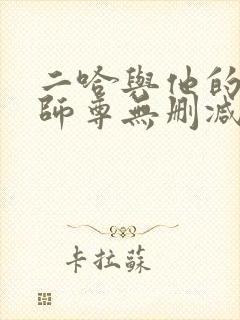 二哈與他的
師尊無刪減
卡拉蘇